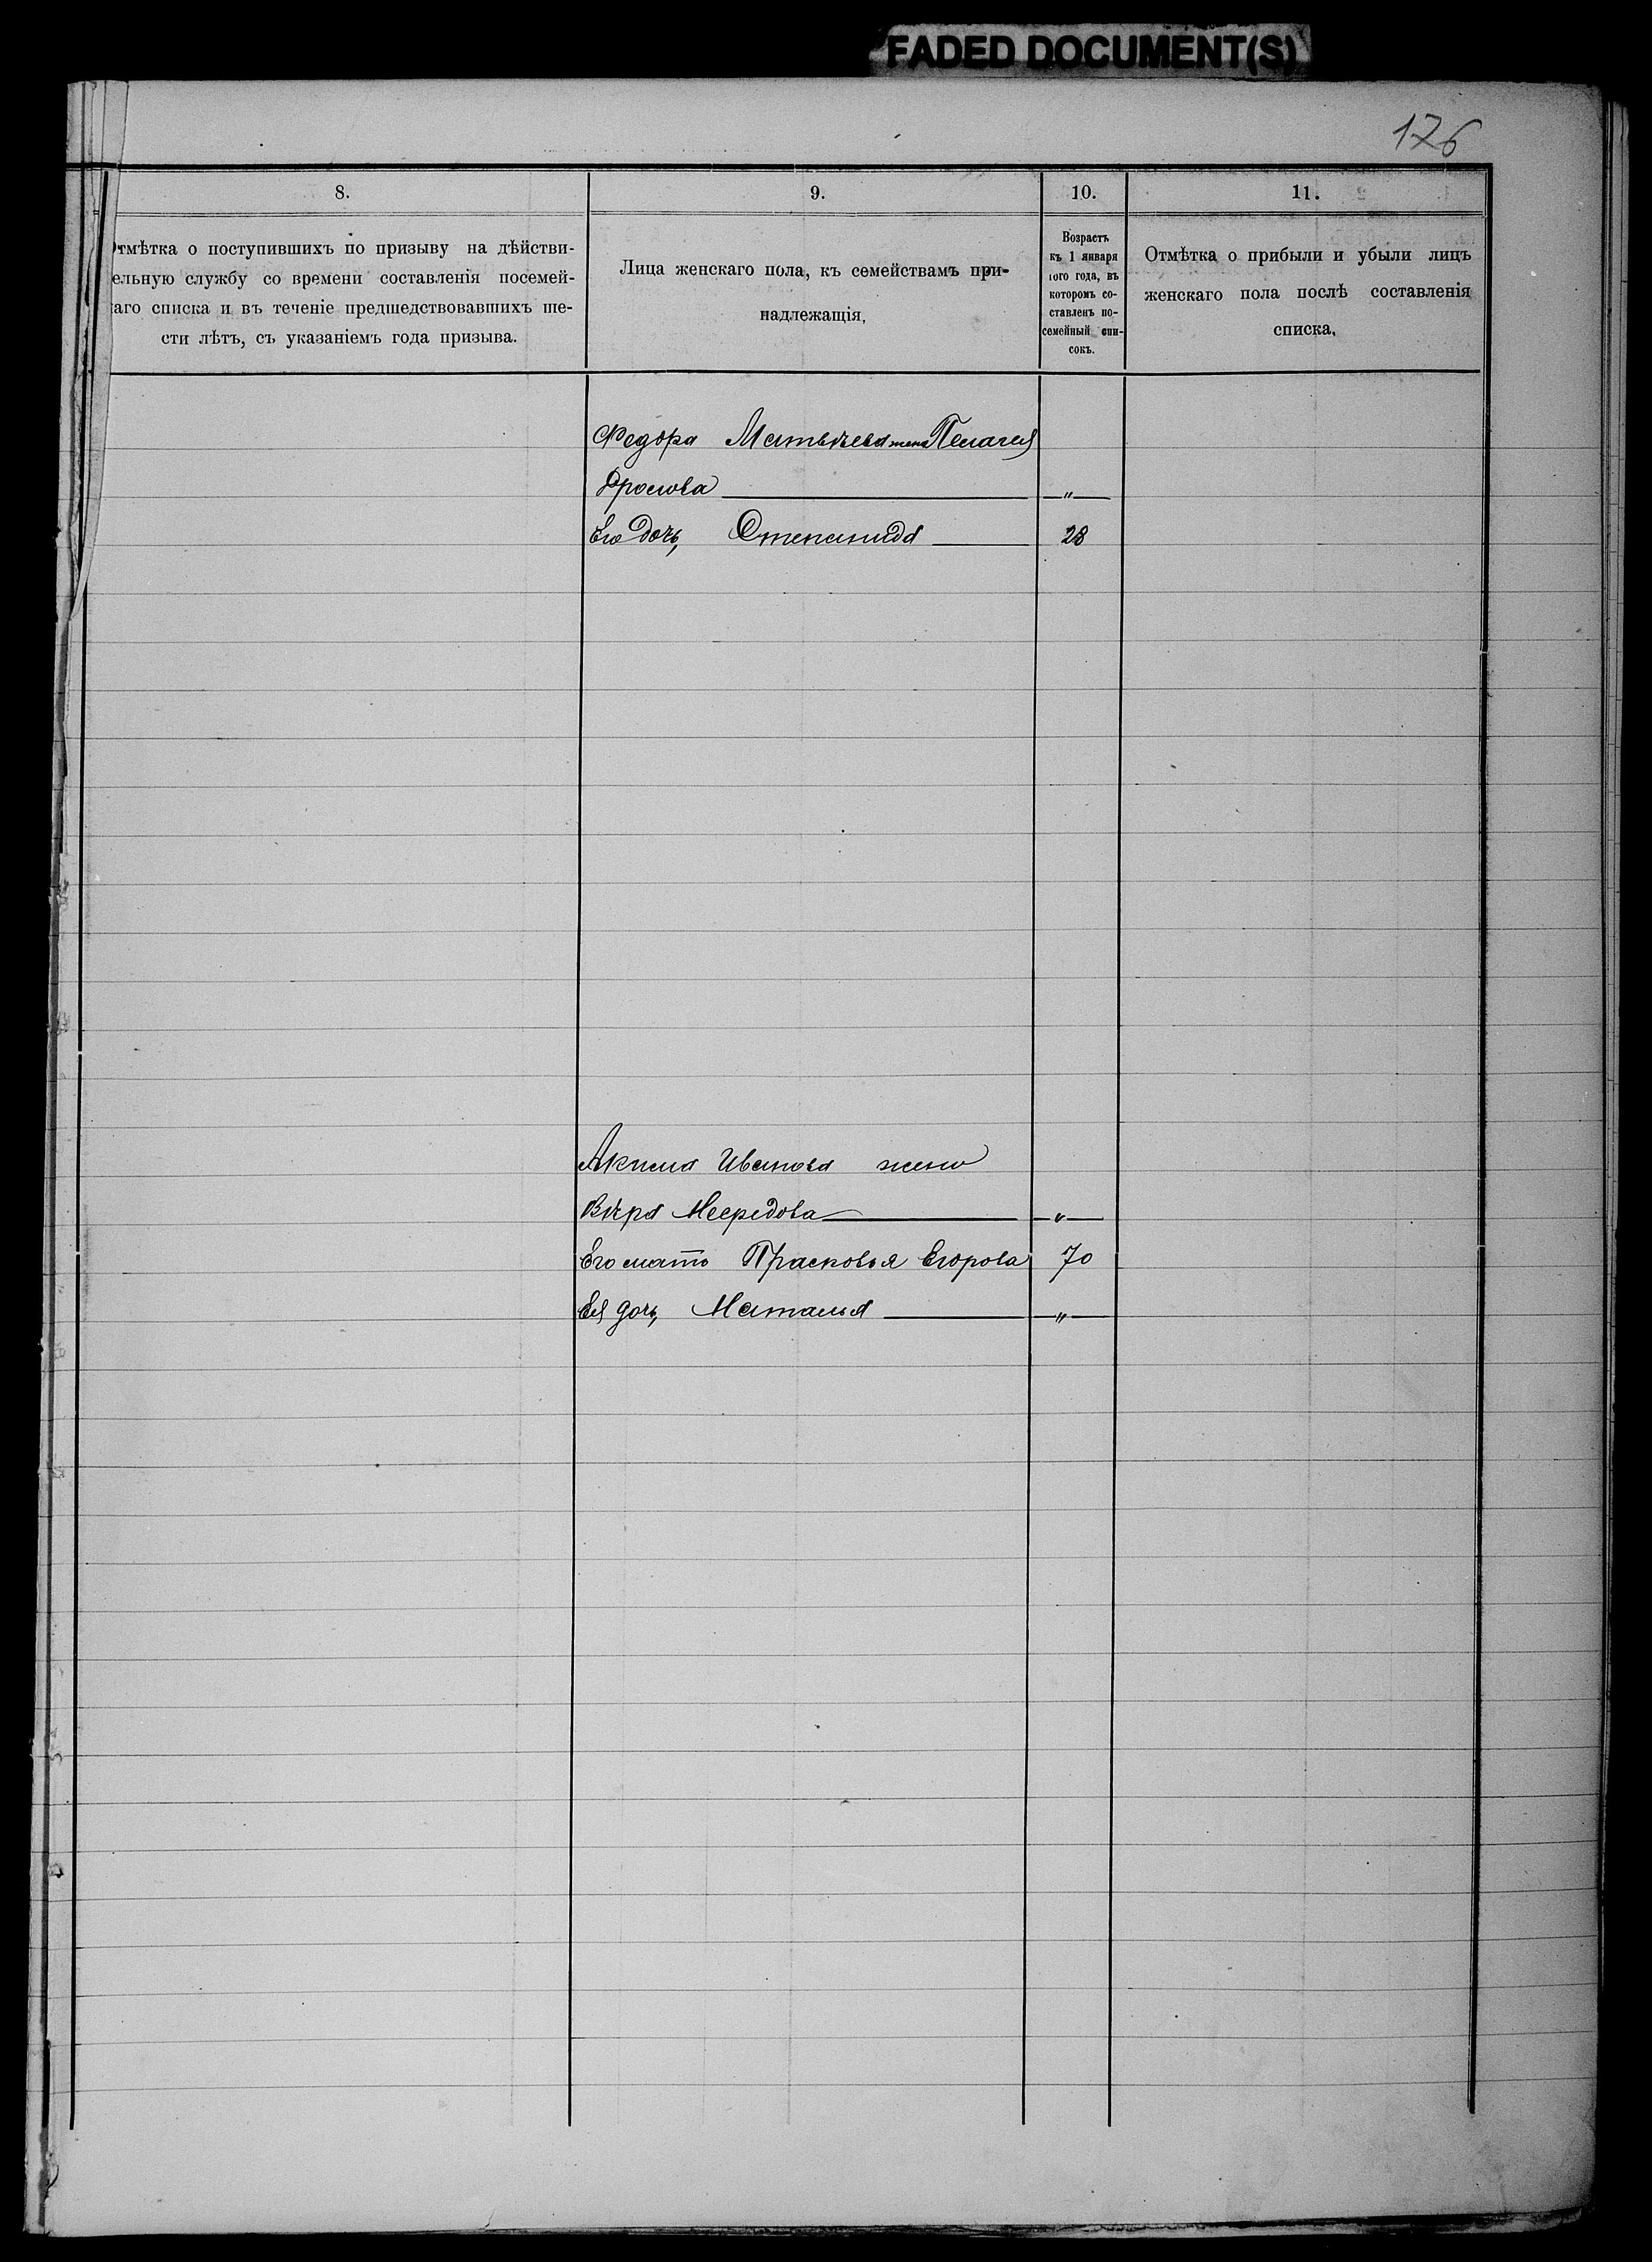 FADED DOCUMENT(S)
176
8.
9.
10.
11.
Отмѣтка о поступившихъ по призыву на дѣйстви-
ельную службу со времени составленія посемей-
аго списка и въ теченіе предшедствовавшихъ ше-
сти лѣтъ, съ указаніемъ года призыва.
Лица женскаго пола, къ семействамъ при-
надлежащія.
Возрастъ
къ 1 января
того года, въ
которомъ со-
ставленъ по-
семейный спи-
сокъ.
Отмѣтка о прибыли и убыли лицъ
женскаго пола послѣ составленія
списка.
Федора Матвѣева жена Пелагея
Фролова "
Его дочь, Степанида 28
Акима Иванова жена
Вѣра "
Его мать Прасковья Егорова 70
Ея дочь, Наталья "